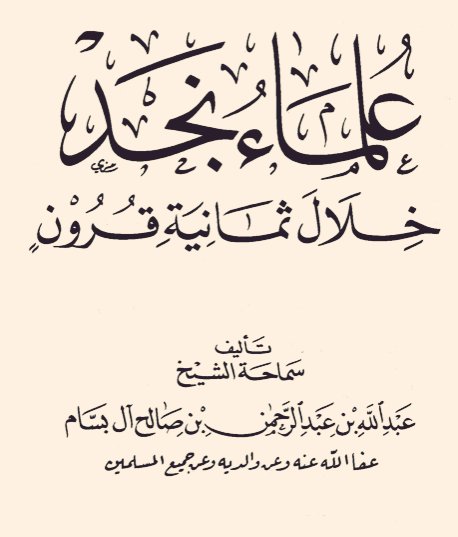 عُلَمَاءُ نَجْد
خِلَالَ ثَمَانِيَةِ قُرُوْنٍ
تَأليف
سَمَاحَة الشيْخ
عَبْدِاللَّهِ بْن عَبْدِالرَّحمٰن بْن صَالح آل بسَّام
عفا اللّه عنه وعن والديه وعن جميع المسلمين